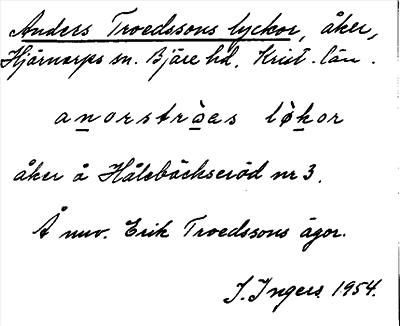 Anders Troedssons lyckor, åker,
Hjärnarps sn. Bjäre hd. Krist. län.
anorstròas lòkor
åker å Hålebäckseröd nr 3.
Å nuv. Erik Troedssons ägor.
I. Ingers 1954.